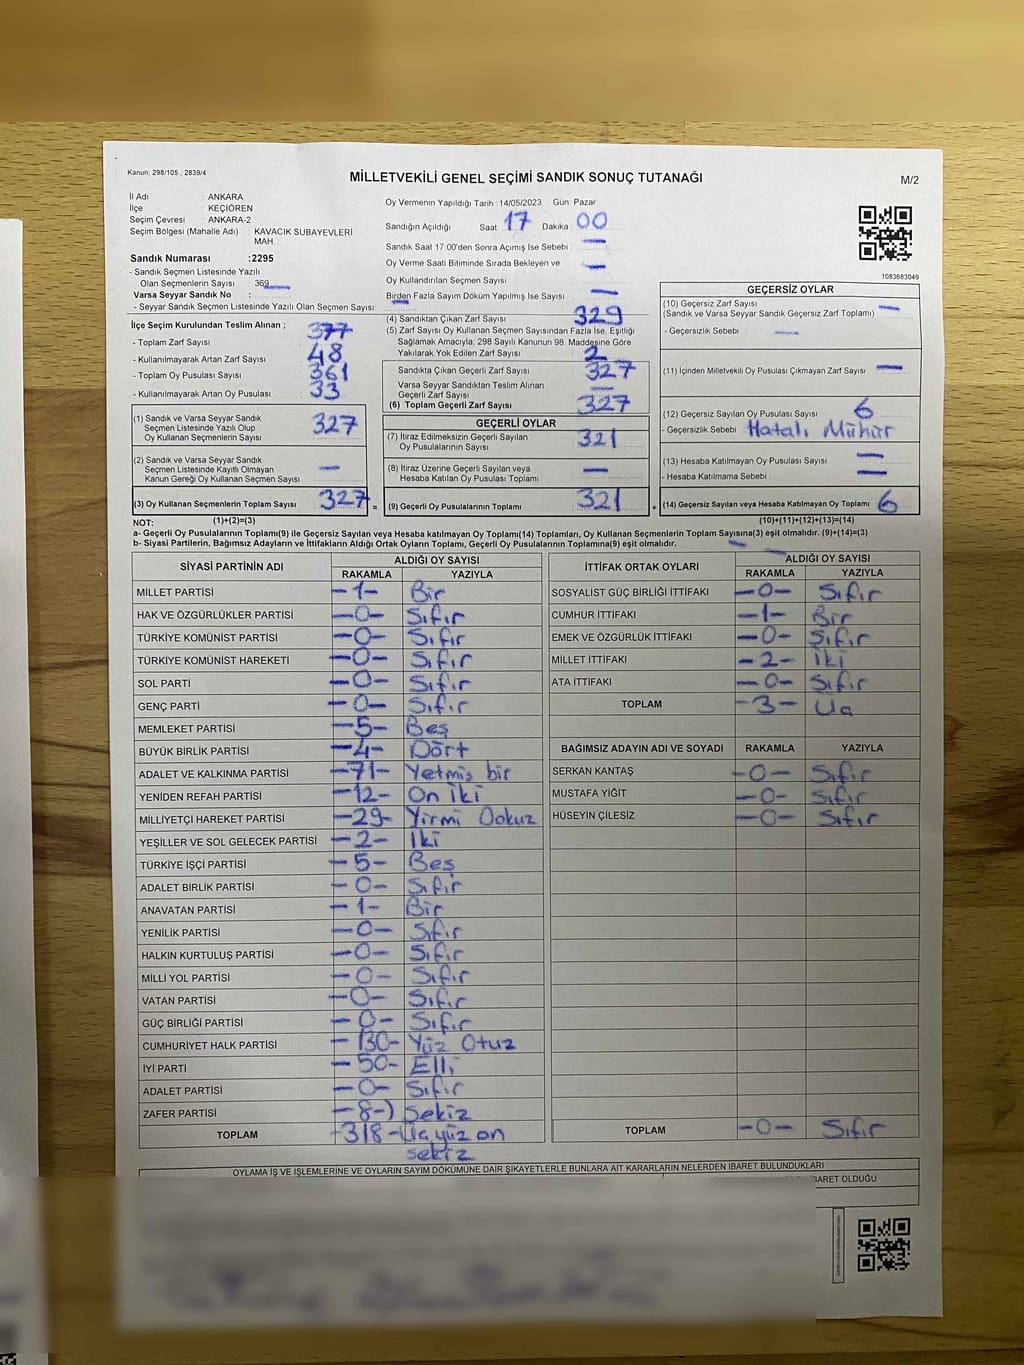 Kanun: 298/105 , 2839/4
MİLLETVEKİLİ GENEL SEÇİMİ SANDIK SONUÇ TUTANAĞI
M/2
İl Adı : ANKARA
İlçe : KEÇİÖREN
Seçim Çevresi : ANKARA-2
Seçim Bölgesi (Mahalle Adı) : KAVACIK SUBAYEVLERİ
MAH.
Sandık Numarası :2295
- Sandık Seçmen Listesinde Yazılı
Olan Seçmenlerin Sayısı : 369
Varsa Seyyar Sandık No :
- Seyyar Sandık Seçmen Listesinde Yazılı Olan Seçmen Sayısı:
İlçe Seçim Kurulundan Teslim Alınan ;
- Toplam Zarf Sayısı 377
- Kullanılmayarak Artan Zarf Sayısı 48
- Toplam Oy Pusulası Sayısı 361
- Kullanılmayarak Artan Oy Pusulası 33
(1) Sandık ve Varsa Seyyar Sandık
Seçmen Listesinde Yazılı Olup
Oy Kullanan Seçmenlerin Sayısı 327
(2) Sandık ve Varsa Seyyar Sandık
Seçmen Listesinde Kayıtlı Olmayan
Kanun Gereği Oy Kullanan Seçmen Sayısı —
(3) Oy Kullanan Seçmenlerin Toplam Sayısı 327 =
Oy Vermenin Yapıldığı Tarih : 14/05/2023 Gün: Pazar
Sandığın Açıldığı Saat: 17 Dakika : 00
Sandık Saat 17:00'den Sonra Açımış İse Sebebi : —
Oy Verme Saati Bitiminde Sırada Bekleyen ve —
Oy Kullandırılan Seçmen Sayısı :
Birden Fazla Sayım Döküm Yapılmış İse Sayısı : —
(4) Sandıktan Çıkan Zarf Sayısı 329
(5) Zarf Sayısı Oy Kullanan Seçmen Sayısından Fazla İse, Eşitliği
Sağlamak Amacıyla, 298 Sayılı Kanunun 98. Maddesine Göre
Yakılarak Yok Edilen Zarf Sayısı 2
Sandıkta Çıkan Geçerli Zarf Sayısı 327
Varsa Seyyar Sandıktan Teslim Alınan
Geçerli Zarf Sayısı —
(6) Toplam Geçerli Zarf Sayısı 327
GEÇERLİ OYLAR
(7) İtiraz Edilmeksizin Geçerli Sayılan
Oy Pusulalarının Sayısı 321
(8) İtiraz Üzerine Geçerli Sayılan veya
Hesaba Katılan Oy Pusulası Toplamı —
(9) Geçerli Oy Pusulalarının Toplamı 321 +
1083683049
GEÇERSİZ OYLAR
(10) Geçersiz Zarf Sayısı
(Sandık ve Varsa Seyyar Sandık Geçersiz Zarf Toplamı) : —
- Geçersizlik Sebebi : —
(11) İçinden Milletvekili Oy Pusulası Çıkmayan Zarf Sayısı : —
(12) Geçersiz Sayılan Oy Pusulası Sayısı : 6
- Geçersizlik Sebebi : Hatalı Mühür
(13) Hesaba Katılmayan Oy Pusulası Sayısı : —
- Hesaba Katılmama Sebebi : —
(14) Geçersiz Sayılan veya Hesaba Katılmayan Oy Toplamı 6
NOT: (1)+(2)=(3) (10)+(11)+(12)+(13)=(14)
a- Geçerli Oy Pusulalarının Toplamı(9) ile Geçersiz Sayılan veya Hesaba katılmayan Oy Toplamı(14) Toplamları, Oy Kullanan Seçmenlerin Toplam Sayısına(3) eşit olmalıdır. (9)+(14)=(3)
b- Siyasi Partilerin, Bağımsız Adayların ve İttifakların Aldığı Ortak Oyların Toplamı, Geçerli Oy Pusulalarının Toplamına(9) eşit olmalıdır.
SİYASİ PARTİNİN ADI ALDIĞI OY SAYISI
RAKAMLA YAZIYLA
MİLLET PARTİSİ -1- Bir
HAK VE ÖZGÜRLÜKLER PARTİSİ -0- Sıfır
TÜRKİYE KOMÜNİST PARTİSİ -0- Sıfır
TÜRKİYE KOMÜNİST HAREKETİ -0- Sıfır
SOL PARTİ -0- Sıfır
GENÇ PARTİ -0- Sıfır
MEMLEKET PARTİSİ -5- Beş
BÜYÜK BİRLİK PARTİSİ -4- Dört
ADALET VE KALKINMA PARTİSİ -71- Yetmiş bir
YENİDEN REFAH PARTİSİ -12- On iki
MİLLİYETÇİ HAREKET PARTİSİ -29- Yirmi Dokuz
YEŞİLLER VE SOL GELECEK PARTİSİ -2- İki
TÜRKİYE İŞÇİ PARTİSİ -5- Beş
ADALET BİRLİK PARTİSİ -0- Sıfır
ANAVATAN PARTİSİ -1- Bir
YENİLİK PARTİSİ -0- Sıfır
HALKIN KURTULUŞ PARTİSİ -0- Sıfır
MİLLİ YOL PARTİSİ -0- Sıfır
VATAN PARTİSİ -0- Sıfır
GÜÇ BİRLİĞİ PARTİSİ -0- Sıfır
CUMHURİYET HALK PARTİSİ -130- Yüz Otuz
İYİ PARTİ -50- Elli
ADALET PARTİSİ -0- Sıfır
ZAFER PARTİSİ -8-) Sekiz
TOPLAM -318- Üç yüz on
sekiz
İTTİFAK ORTAK OYLARI ALDIĞI OY SAYISI
RAKAMLA YAZIYLA
SOSYALİST GÜÇ BİRLİĞİ İTTİFAKI -0- Sıfır
CUMHUR İTTİFAKI -1- Bir
EMEK VE ÖZGÜRLÜK İTTİFAKI -0- Sıfır
MİLLET İTTİFAKI -2- İki
ATA İTTİFAKI -0- Sıfır
TOPLAM -3- Üç
BAĞIMSIZ ADAYIN ADI VE SOYADI RAKAMLA YAZIYLA
SERKAN KANTAŞ -0- Sıfır
MUSTAFA YİĞİT -0- Sıfır
HÜSEYİN ÇİLESİZ -0- Sıfır
TOPLAM -0- Sıfır
OYLAMA İŞ VE İŞLEMLERİNE VE OYLARIN SAYIM DÖKÜMÜNE DAİR ŞİKAYETLERLE BUNLARA AİT KARARLARIN NELERDEN İBARET BULUNDUKLARI
İBARET OLDUĞU